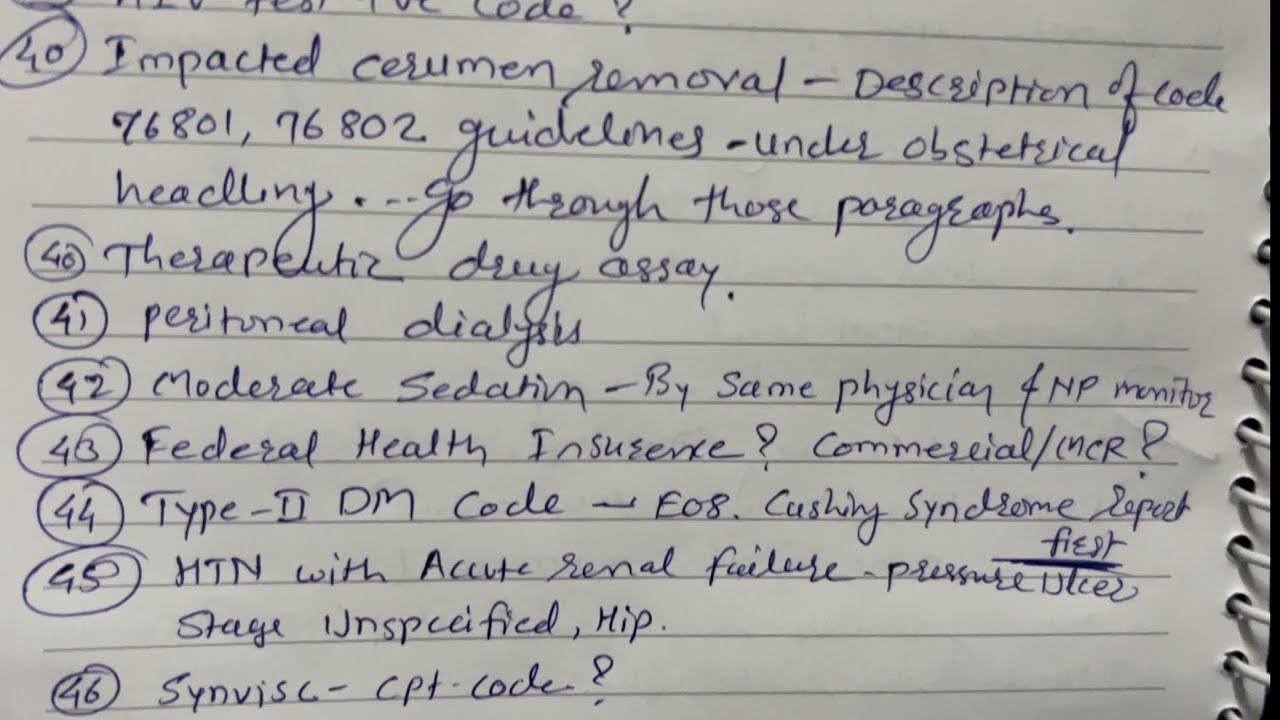 HIV Test +ve Code ?
40 Impacted cerumen removal – Description of code
76801, 76802 guidelines - under obstetrical
headling. ... go through those paragraphs.
40 Therapeutic drug assay.
41 peritoneal dialysis
42 Moderate Sedation – By Same physician & NP monitor
43 Federal Health Insurence? Commercial/MCR?
44 Type-II DM Code – E08. Cushing Syndrome report
first
45 HTN with Accute renal failure - pressure Ulcer
Stage Unspecified, Hip.
46 Synvisc - cpt-code.?